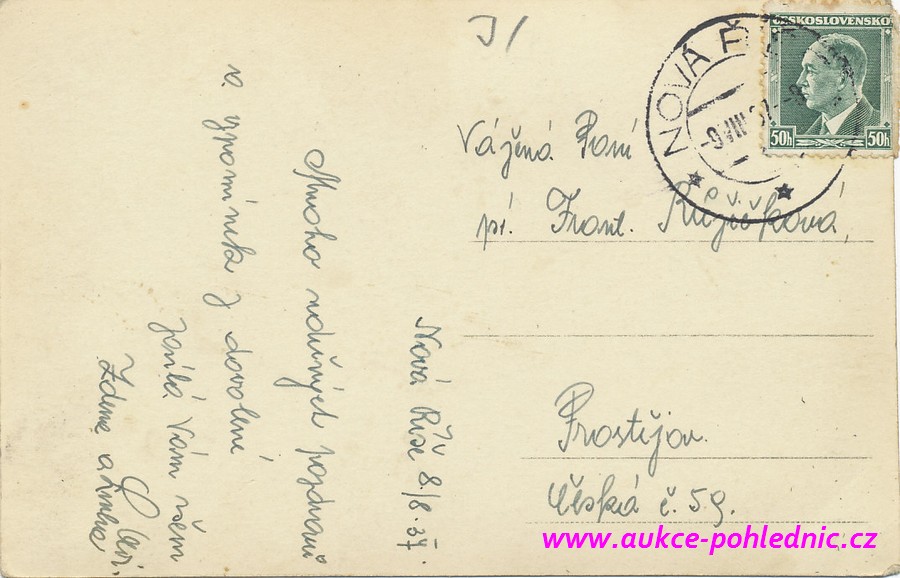 J/
ČESKOSLOVENSKO
50h 50h
NOVÁ Ř
Vážená Paní
pí. Frant. Růžičková,
Prostějov.
Česká č. 59.
Nová Říše 8/8. 37.
Mnoho srdečných pozdravů
a vzpomínek z dovolené
zasílá Vám všem
Zdena a
www.aukce-pohlednic.cz